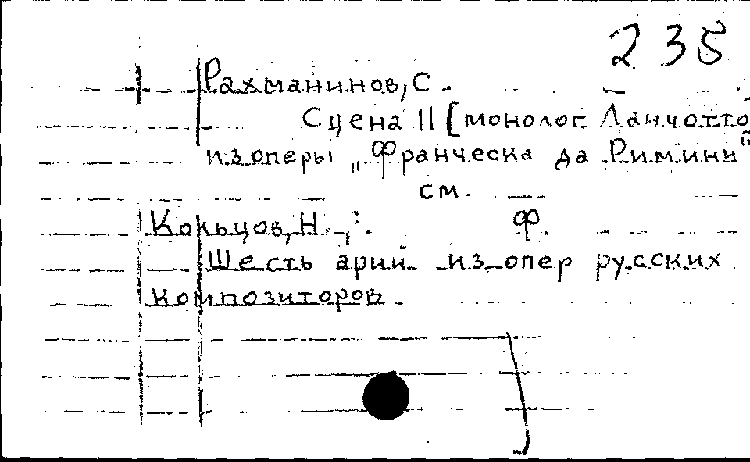 235
Рахманинов, С.
Сцена II [монолог Ланчотто
из оперы „Франческа да Римини"
см.
Кольцов, Н., : Ф.
Шесть арий из опер русских
композиторов.